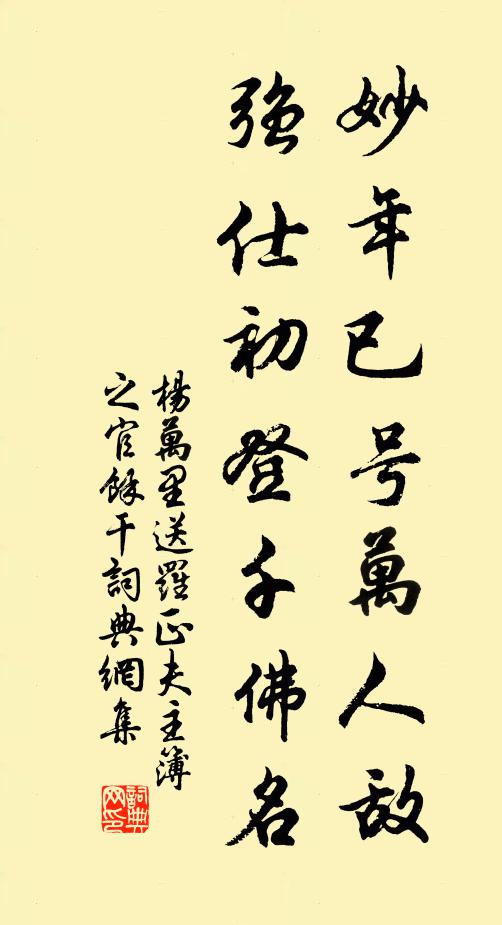 妙年已号萬人敵
强仕初登千佛名
楊萬里送羅正夫主簿
之官餘干詞典網集
詞典
网印